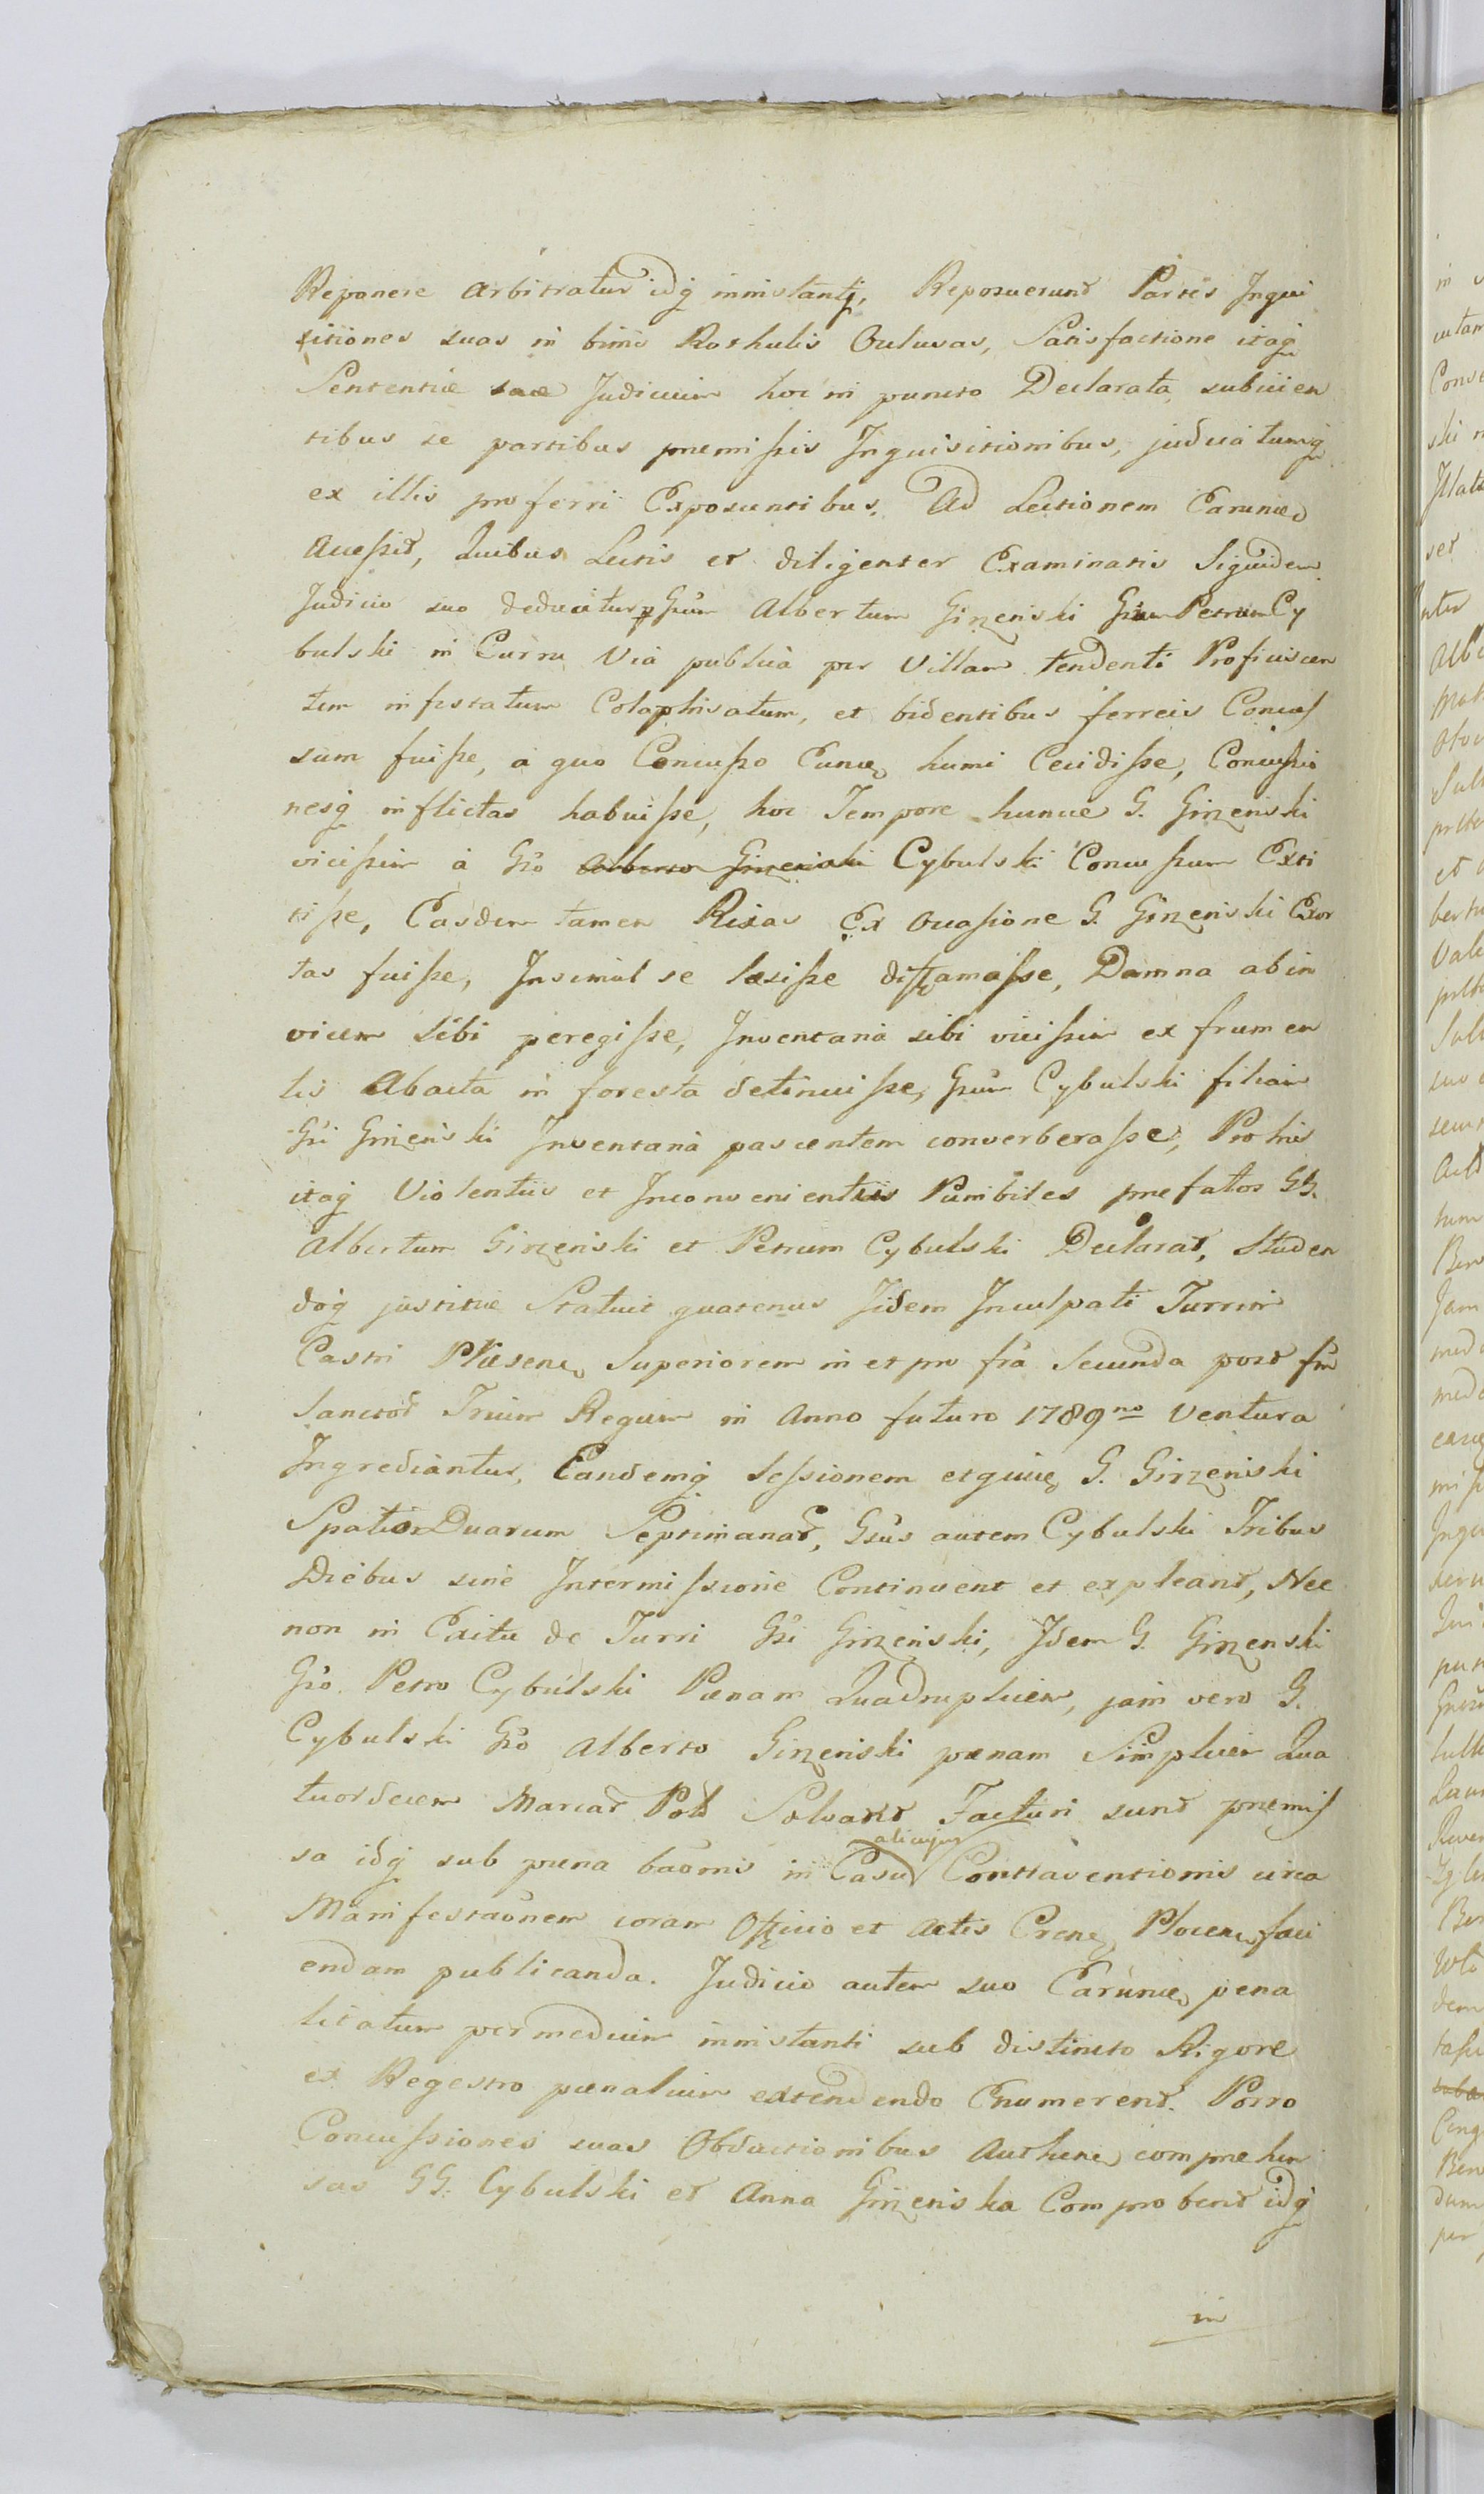 Reponere arbitratur idq inınstanti, Reposuerunt Partes Inqui
sitiones suas in binis Rothulis Oclusas, Satisfactione itaq
Sententiæ suæ Judicium hoc in puncto Declarata, subiicien
tibus se partibus præmissis Inquisitionibus, judicatumq
ex illis proferri Exposcentibus. Ad Lectionem Earunde
Accessit, Quibus Lectis et diligenter Examinatis Siquidem
Judicio suo deducitur Gsum Albertum Girzenski Gsum Petrum Cy
bulski in Curru Via publica per Villam tendenti Proficiscen
tem infestatum Colaphisatum, et bidentibus ferreis Concus
sum fuisse, a quo Concusso Eunde humi Cecidisse, Concussio
nesq inflictas habuisse, hoc Tempore hunce G. Girzenski
vicissim à Gso Alberto Girzenski Cybulski Concussum Exti
tisse, Easdem tamen Rixas Ex Occasione G. Girzenski Exor
tas fuisse, Insimul se læsisse diffamasse, Damna abin
vicem sibi peregisse, Inventaria sibi vicissim ex frumen
tis Abacta in foresta detinuisse, Gsum Cybulski filiam
Gsi Girzenski Inventaria pascentem converberasse, Pro his
itaq Violentiis et Inconvenientiis Punibiles præfatos GG.
Albertum Girzenski et Petrum Cybulski Declarat, Studen
doq justitiæ Statuit quatenus Iidem Inculpati Turrim
Castri Superiorem in et pro fra Secunda post fm
Sanctor Trium Regum in Anno futuro 1789no Ventura
Ingrediantur, Eandemq Sessionem G. Girzenski
Spatio Duarum Septimanar, Gsus autem Cybulski Tribus
Diebus sine Intermissione Continuent et expleant, Nec
non in Exitu de Turri Gsi Girzenski, Idem G. Girzenski
Gso Petro Cybulski Pænam Quadruplicem, jam vero G.
Cybulski Gso Alberto Girzenski pænam Simplicem Qua
tuordecem Marcar Pol Solvant Facturi sunt præmis
sa idq sub pæna baõnis in Casu alicujus Contraventionis circa
Manifestaõnem coram Officio et Actis Crene Plocen faci
endam publicanda. Judicio autem suo Earunde pæna
litatum per medium inınstanti sub distincto Rigore
ex Regestro pænalium extendendo Enumerent. Porro
Concussiones suas Obductionibus Authen comprehen
sas GG. Cybulski et Anna Girzenska Comprobent idq
in